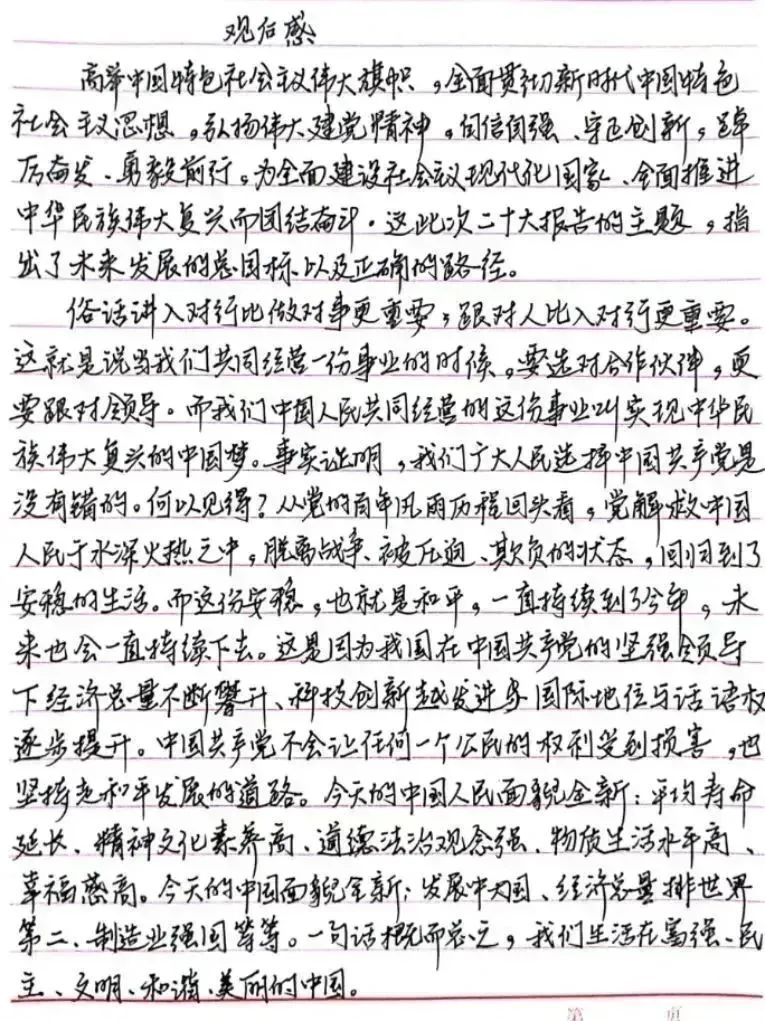 观后感
高举中国特色社会主义伟大旗帜，全面贯彻新时代中国特色
社会主义思想，弘扬伟大建党精神，自信自强、守正创新，踔
厉奋发、勇毅前行，为全面建设社会主义现代化国家、全面推进
中华民族伟大复兴而团结奋斗。这此次二十大报告的主题，指
出了未来发展的总目标以及正确的路径。
俗话讲入对行比做对事更重要；跟对人比入对行更重要。
这就是说当我们共同经营一份事业的时候，要选对合作伙伴，更
要跟对领导。而我们中国人民共同经营的这份事业叫实现中华民
族伟大复兴的中国梦。事实证明，我们广大人民选择中国共产党是
没有错的。何以见得？从党的百年风雨历程回头看，党解救中国
人民于水深火热之中，脱离战争、被压迫、欺负的状态，回归到了
安稳的生活。而这份安稳，也就是和平，一直持续到了今年，未
来也会一直持续下去。这是因为我国在中国共产党的坚强领导
下经济总量不断攀升、科技创新越发进步国际地位与话语权
逐步提升。中国共产党不会让任何一个公民的权利受到损害，也
坚持走和平发展的道路。今天的中国人民面貌全新：平均寿命
延长、精神文化素养高、道德法治观念强、物质生活水平高、
幸福感高。今天的中国面貌全新：发展中大国、经济总量排世界
第二、制造业强国等等。一句话概而总之，我们生活在富强、民
主、文明、和谐、美丽的中国。
第 页